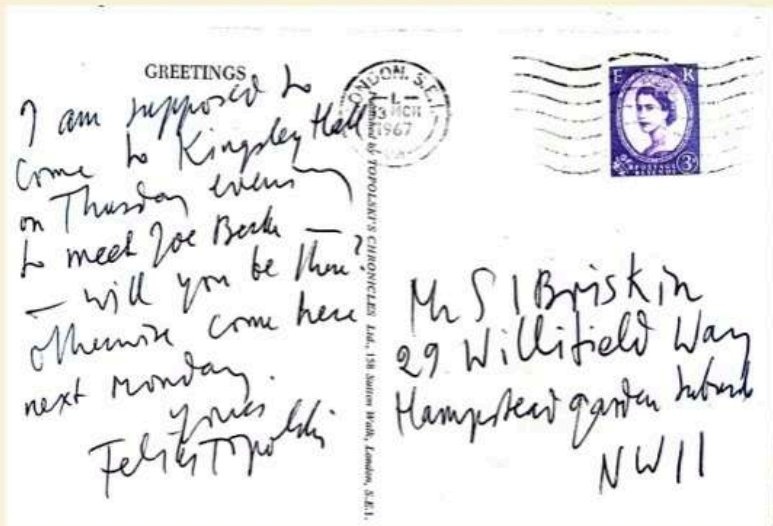 GREETINGS
I am supposed to
come to Kingsley Hall
on Thursday evening
to meet Joe Berke —
— will you be there?
otherwise come here
next monday.
yours
Feliks Topolski
Published by TOPOLSKI'S CHRONICLES Ltd., 158 Sutton Walk, London, S.E.1.
LONDON. S.E.1.
3 MCH
1967
E R
POSTAGE
REVENUE
3D
Mr S I Briskin
29 Willifield Way
Hampstead garden suburb
NW11